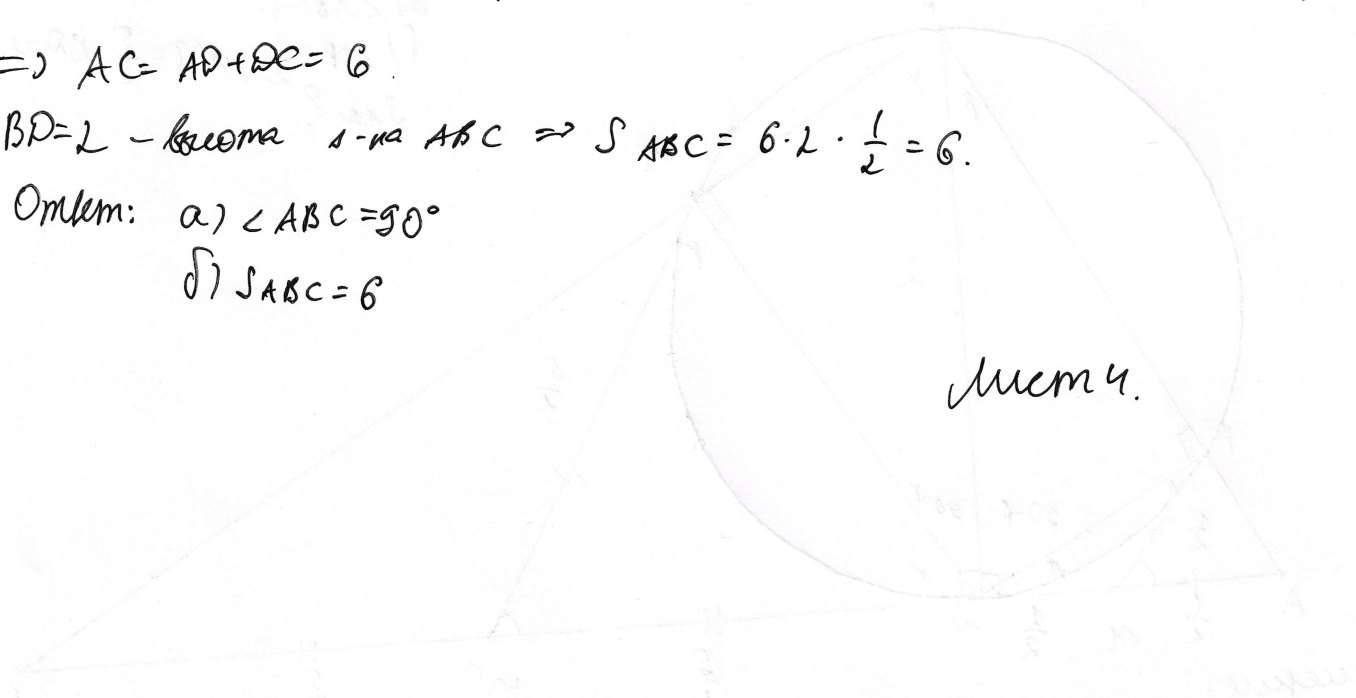 => AC = AD + DC = 6.
BD = 2 - высота Δ-ка ABC => S ABC = 6 · 2 · 1/2 = 6.
Ответ: а) ∠ABC = 90°
б) S ABC = 6
Лист 4.